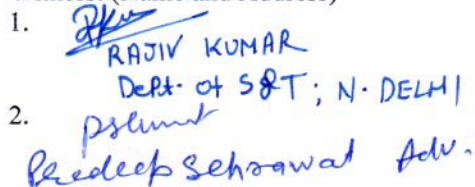 1.
RAJIV KUMAR
Deptt. of S&T; N. DELHI
2.
Pradeep Sehrawat Adv.